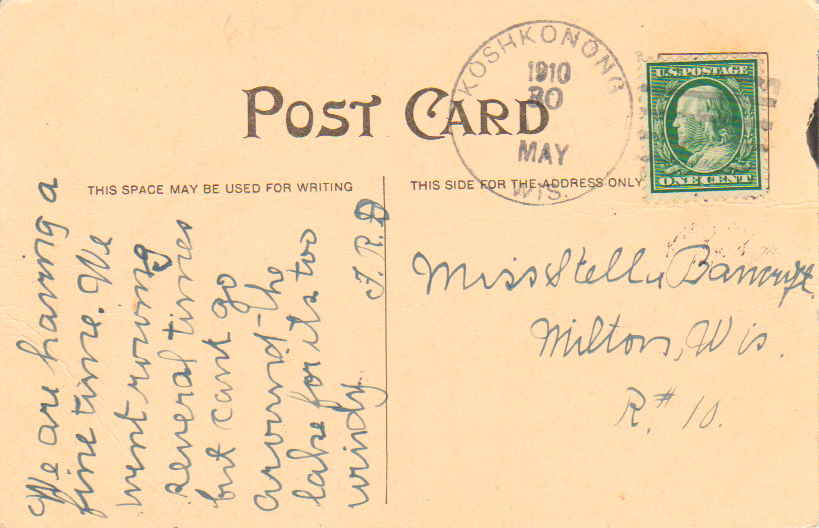 POST CARD
THIS SPACE MAY BE USED FOR WRITING
THIS SIDE FOR THE ADDRESS ONLY
KOSHKONONG
1910
30
MAY
WIS.
U.S. POSTAGE
ONE CENT
We are having a
fine time. We
went rowing
several times
but cant go
around the
lake for its too
windy
F. R. D
Miss Stella Bancroft
Milton, Wis.
R.# 10.